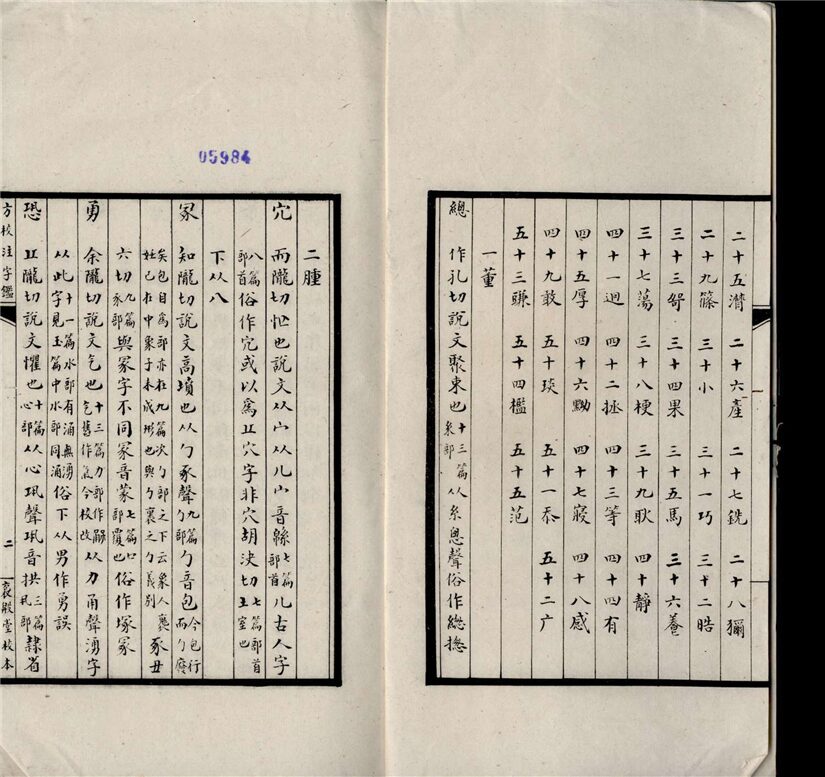 二十五潸 二十六產 二十七銑 二十八獮
二十九篠 三十小 三十一巧 三十二晧
三十三哿 三十四果 三十五馬 三十六養
三十七蕩 三十八梗 三十九耿 四十靜
四十一迥 四十二拯 四十三等 四十四有
四十五厚 四十六黝 四十七寑 四十八感
四十九敢 五十琰 五十一忝 五十二广
五十三豏 五十四檻 五十五范
一董
總 作孔切說文聚束也十三篇糸部从糸悤聲俗作總摠
05984
二腫
宂 而隴切忙也說文从宀从儿宀音緜七篇部首儿古人字
八篇部首俗作冗或以爲丘穴字非穴胡決切七篇部首土室也
下从八
冢 知隴切說文高墳也从勹豖聲九篇勹部勹音包今包行而勹廢
矣包自爲部亦在九篇次勹部之下云象人裹妊已在中象子未成形也與勹裹之勹義別豖丑
六切九篇豕部與冡字不同冡音蒙七篇冃部覆也俗作塚冢
勇 余隴切說文气也十三篇力部气舊作氣今校改从力甬聲湧字
从此字十一篇水部有涌無湧見玉篇中水部同涌俗下从男作勇誤
恐 丘隴切說文懼也十篇心部从心巩聲巩音拱三篇丮部隸省
方校注字鑑 二 褱殷堂校本